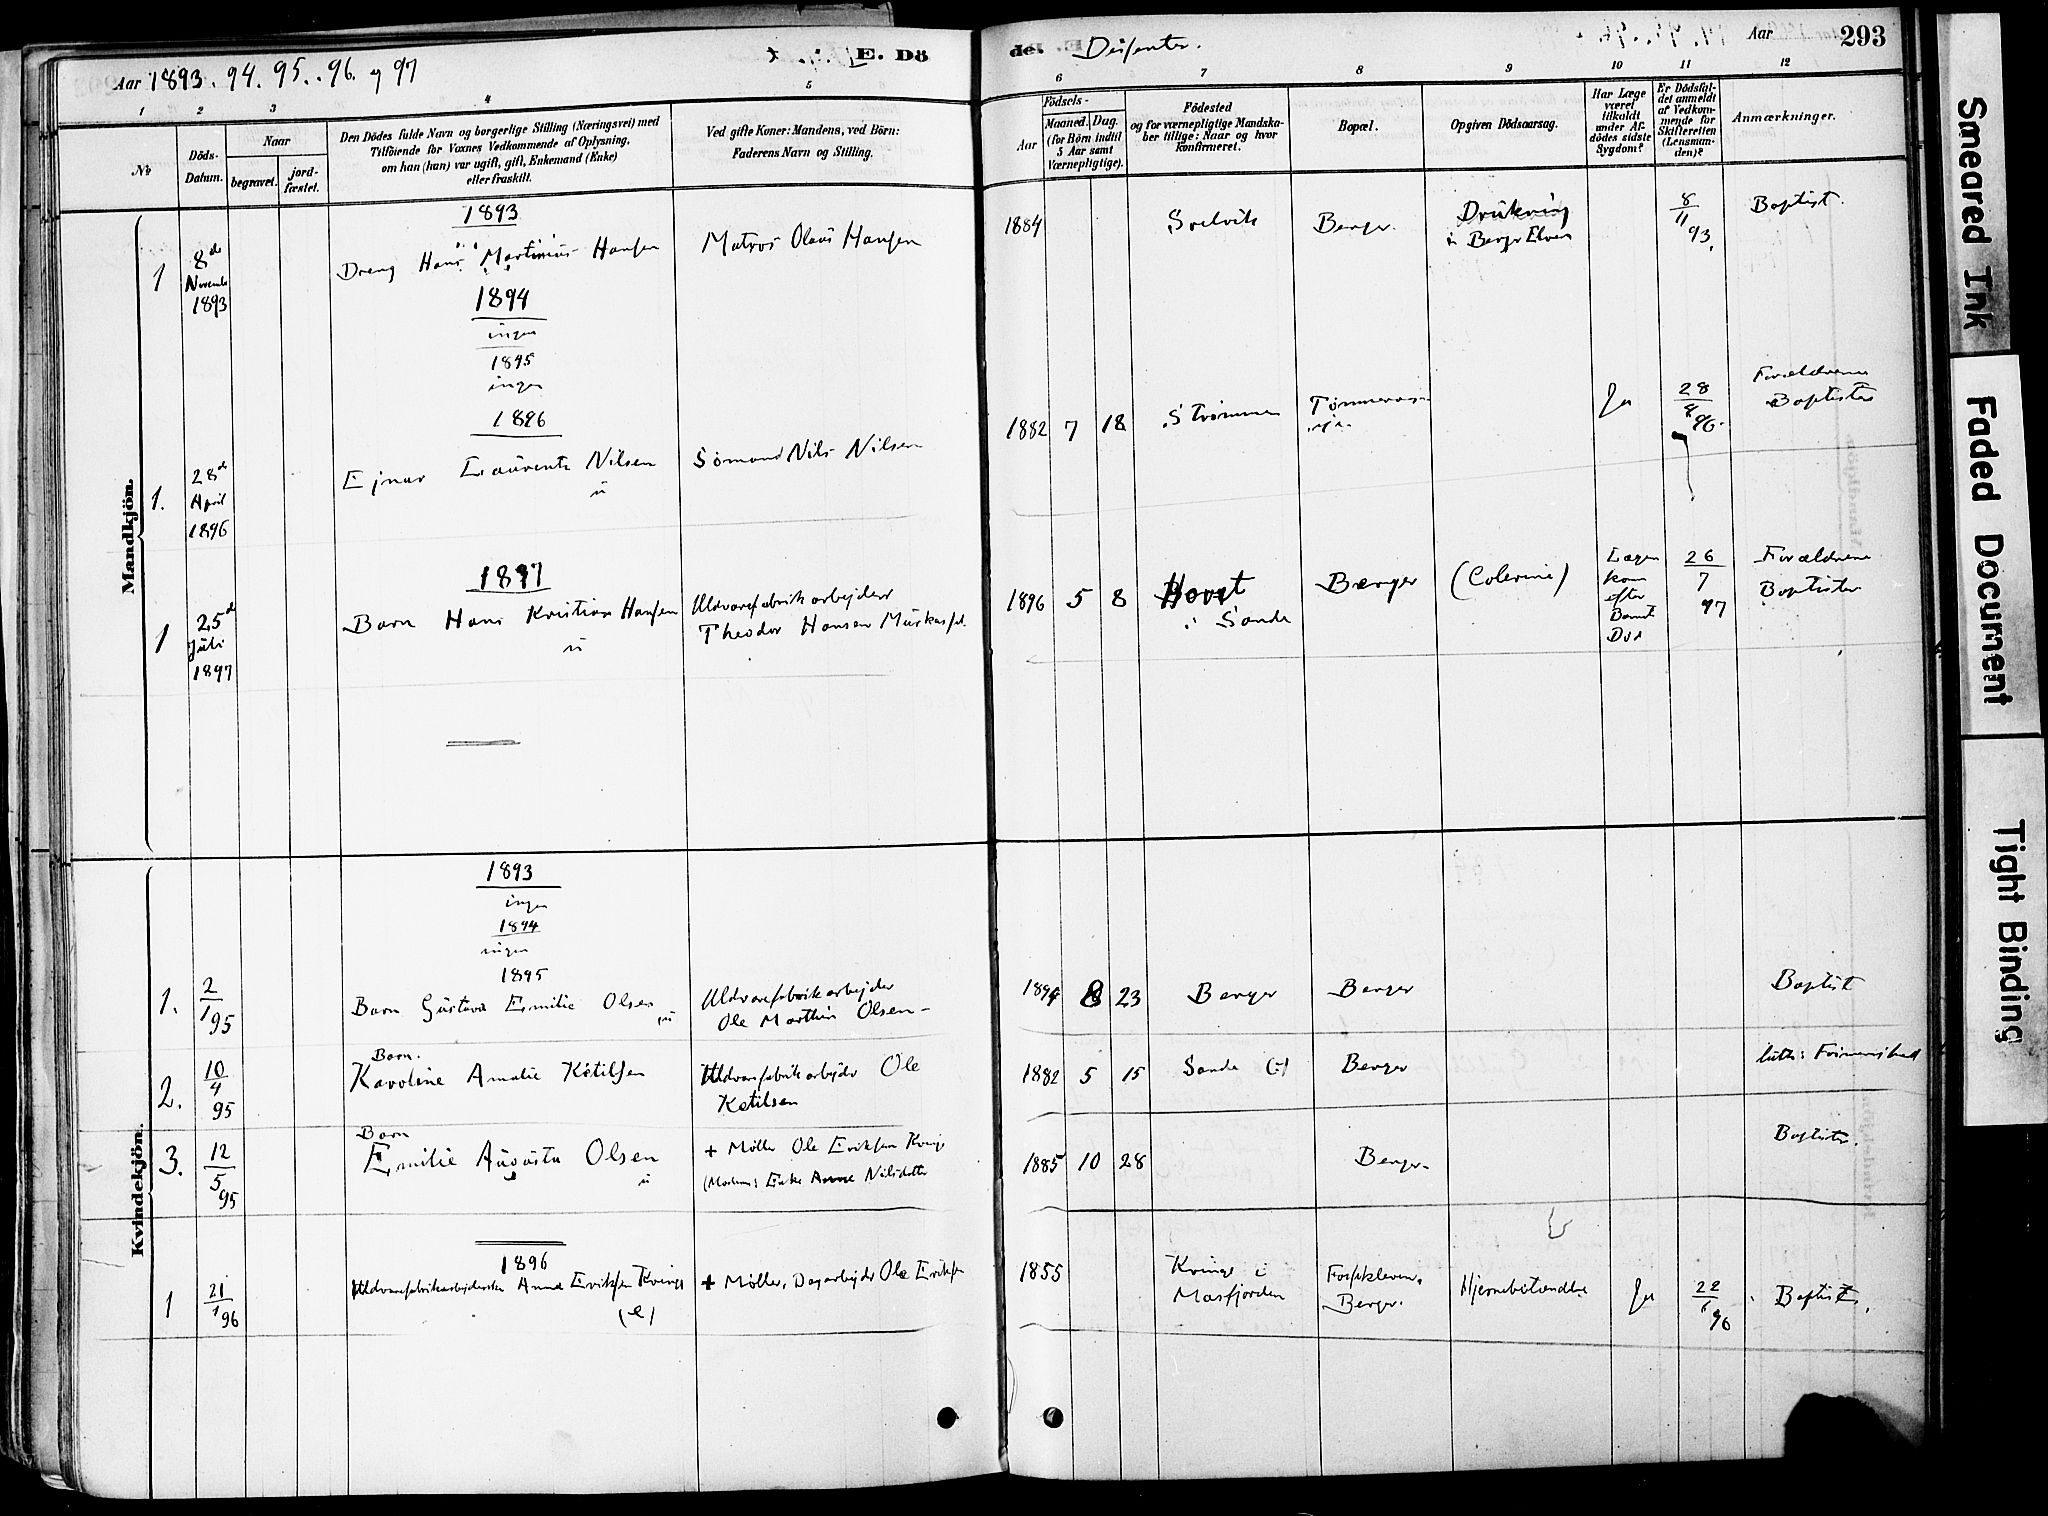 Aar 1893. 94. 95.. 96. y 97
E. Dö
de. Disenter.
Aar
293
1
2
3
4
5
6
7
8
9
10
11
12
No
Döds-
Datum.
Naar
begravet.
jord-
fæstet.
Den Dödes fulde Navn og borgerlige Stilling (Næringsvei) med
Tilföiende for Voxnes Vedkommende af Oplysning,
om han (han) var ugift, gift, Enkemand (Enke)
eller fraskilt.
Ved gifte Koner: Mandens, ved Börn:
Faderens Navn og Stilling.
Födsels-
Aar
Maaned.
Dag.
(for Börn indtil
5 Aar samt
Værnepligtige).
Födested
og for værnepligtige Mandska-
ber tillige: Naar og hvor
konfirmeret.
Bopæl.
Opgiven Dödsaarsag.
Har Læge
været
tilkaldt
under Af-
dödes sidste
Sygdom?
Er Dödsfal-
det anmeldt
af Vedkom-
mende for
Skifteretten
(Lensman-
den)?
Anmærkninger.
Mandkjön.
1893
1
8de
Novembr
1893
Dreng Hans Martinius Hansen
Matros Olaus Hansen
1884
Svelvik
Berger.
Drukning
i Berger Elven
8
11 93.
Baptist.
1894
ingen
1895
ingen
1896
1.
28de
April
1896
Ejnar Laurentz Nilsen
u
Sømand Nils Nilsen
1882 7 18
Strømmen
Ja
28
4 96.
Forældrene
Baptister
1897
1
25d
Juli
1897
Barn Hans Kristian Hansen
u
Uldvarefabrikarbejder
Theodor Hansen
1896 5 8
Hovet
i Sande
Berger
(Colerine)
Lægen
kom
efter
Barnets
Død
26
7
97
Forældrene
Baptister
Kvindekjön.
1893
ingen
1894
ingen
1895
1.
2
1 95
Barn Gustava Emilie Olsen
u
Uldvarefabrikarbejder
Ole Marthin Olsen
1894 8 23
Berger
Berger
Baptist
2.
10
4
95
Barn.
Karoline Amalie Ketilsen
Uldvarefabrikarbejder Ole
Ketilsen
1882 5 15
Sande
Berger
3.
12
5 95
Barn
Emilie Augusta Olsen
u
+ Møller Ole Eriksen Kvinge
(Moderen: Enke Anne Nilsdatter
1885 10 28
Berger
Baptister.
1896
1
21
1 96
Uldvarefabrikarbejderske Anne Eriksen Kvinge
(e)
+ Møller, Dagarbejder Ole Eriksen
1855
Kvinge i
Masfjorden
Fossekleven,
Berger.
Hjernebetændelse
Ja
22
1 96
Baptist.
Smeared Ink
Faded Document
Tight Binding